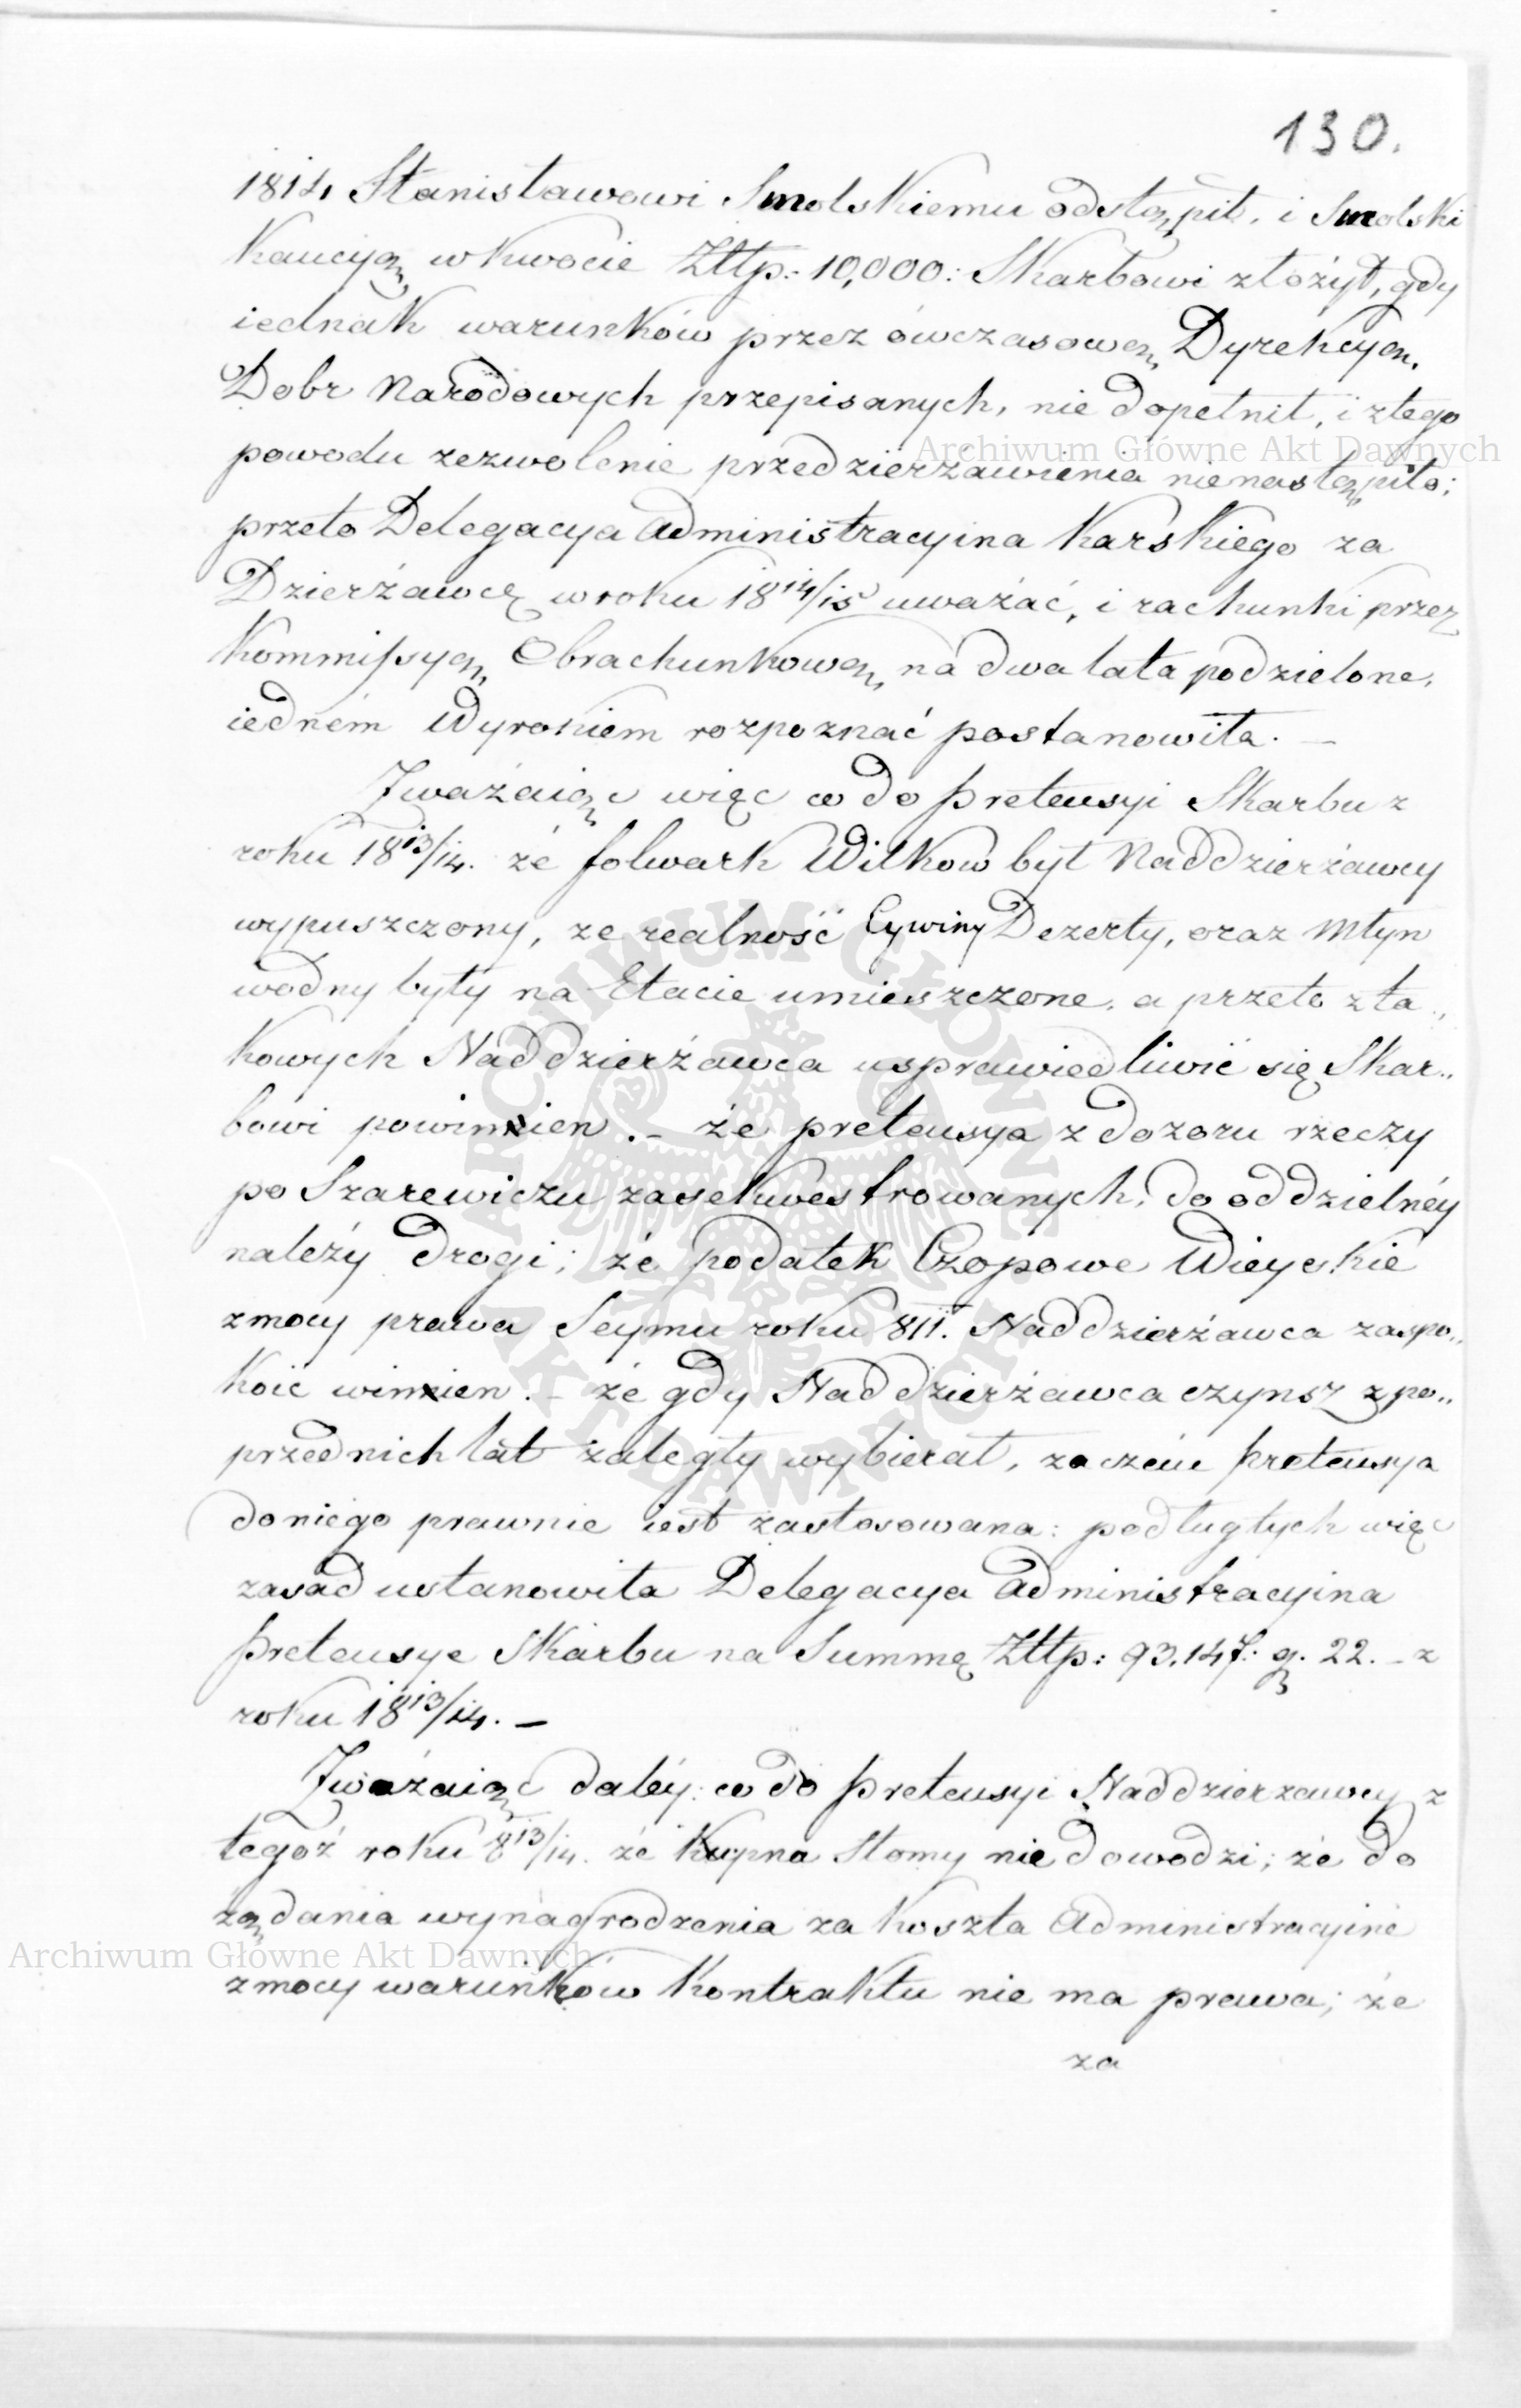 130.
1814 Stanisławowi Smolskiemu odstąpił, i Smolski
Kaucyą w kwocie Złtp: 10,000: Skarbowi złożył, gdy
iednak warunków przez ówczasową Dyrekcyą
Dobr Narodowych przepisanych, nie dopełnił, i ztego
powodu zezwolenie przedzierzawienia nienastąpiło;
przeto Delegacya Administracyina Karskiego za
Dzierżawcę w roku 18 14/15 uważać, i rachunki przez
Kommissyą Obrachunkową na dwa lata podzielone,
iedném Wyrokiem rozpoznać postanowiła. —
Zważaiąc więc co do pretensyi Skarbu z
roku 18 13/14. że folwark Wilkow był Naddzierżawcy
wypuszczony, ze realność Cywiny Dezerty, oraz Młyn
wodny były na Etacie umieszczone, a przeto z ta„
kowych Naddzierżawca usprawiedliwić się Skar„
bowi powinien. — że pretensya z dozoru rzeczy
po Szarewiczu zasekwestrowanych, do oddzielnéy
należy drogi; że podatek Czopowe Wieyskie
zmocy prawa Seymu roku 811. Naddzierżawca zaspo„
koić winien. — że gdy Naddzierżawca czynsz z po„
przednich lat zaległy wybierał, zaczém pretensya
doniego prawnie iest zastosowana: podługtych więc
zasad ustanowiła Delegacya Administracyina
pretensye Skarbu na Summę Złtp: 93.147: g. 22. — z
roku 18 13/14. —
Zważaiąc daléy: co do pretensyi Naddzierzawcy z
tegoż roku 8 13/14. że Kupna Słomy nie dowodzi; że do
żądania wynagrodzenia za koszta Administracyine
zmocy warunków Kontraktu nie ma prawa; że
za
Archiwum Główne Akt Dawnych
ARCHIWUM GŁÓWNE AKT DAWNYCH
Archiwum Główne Akt Dawnych